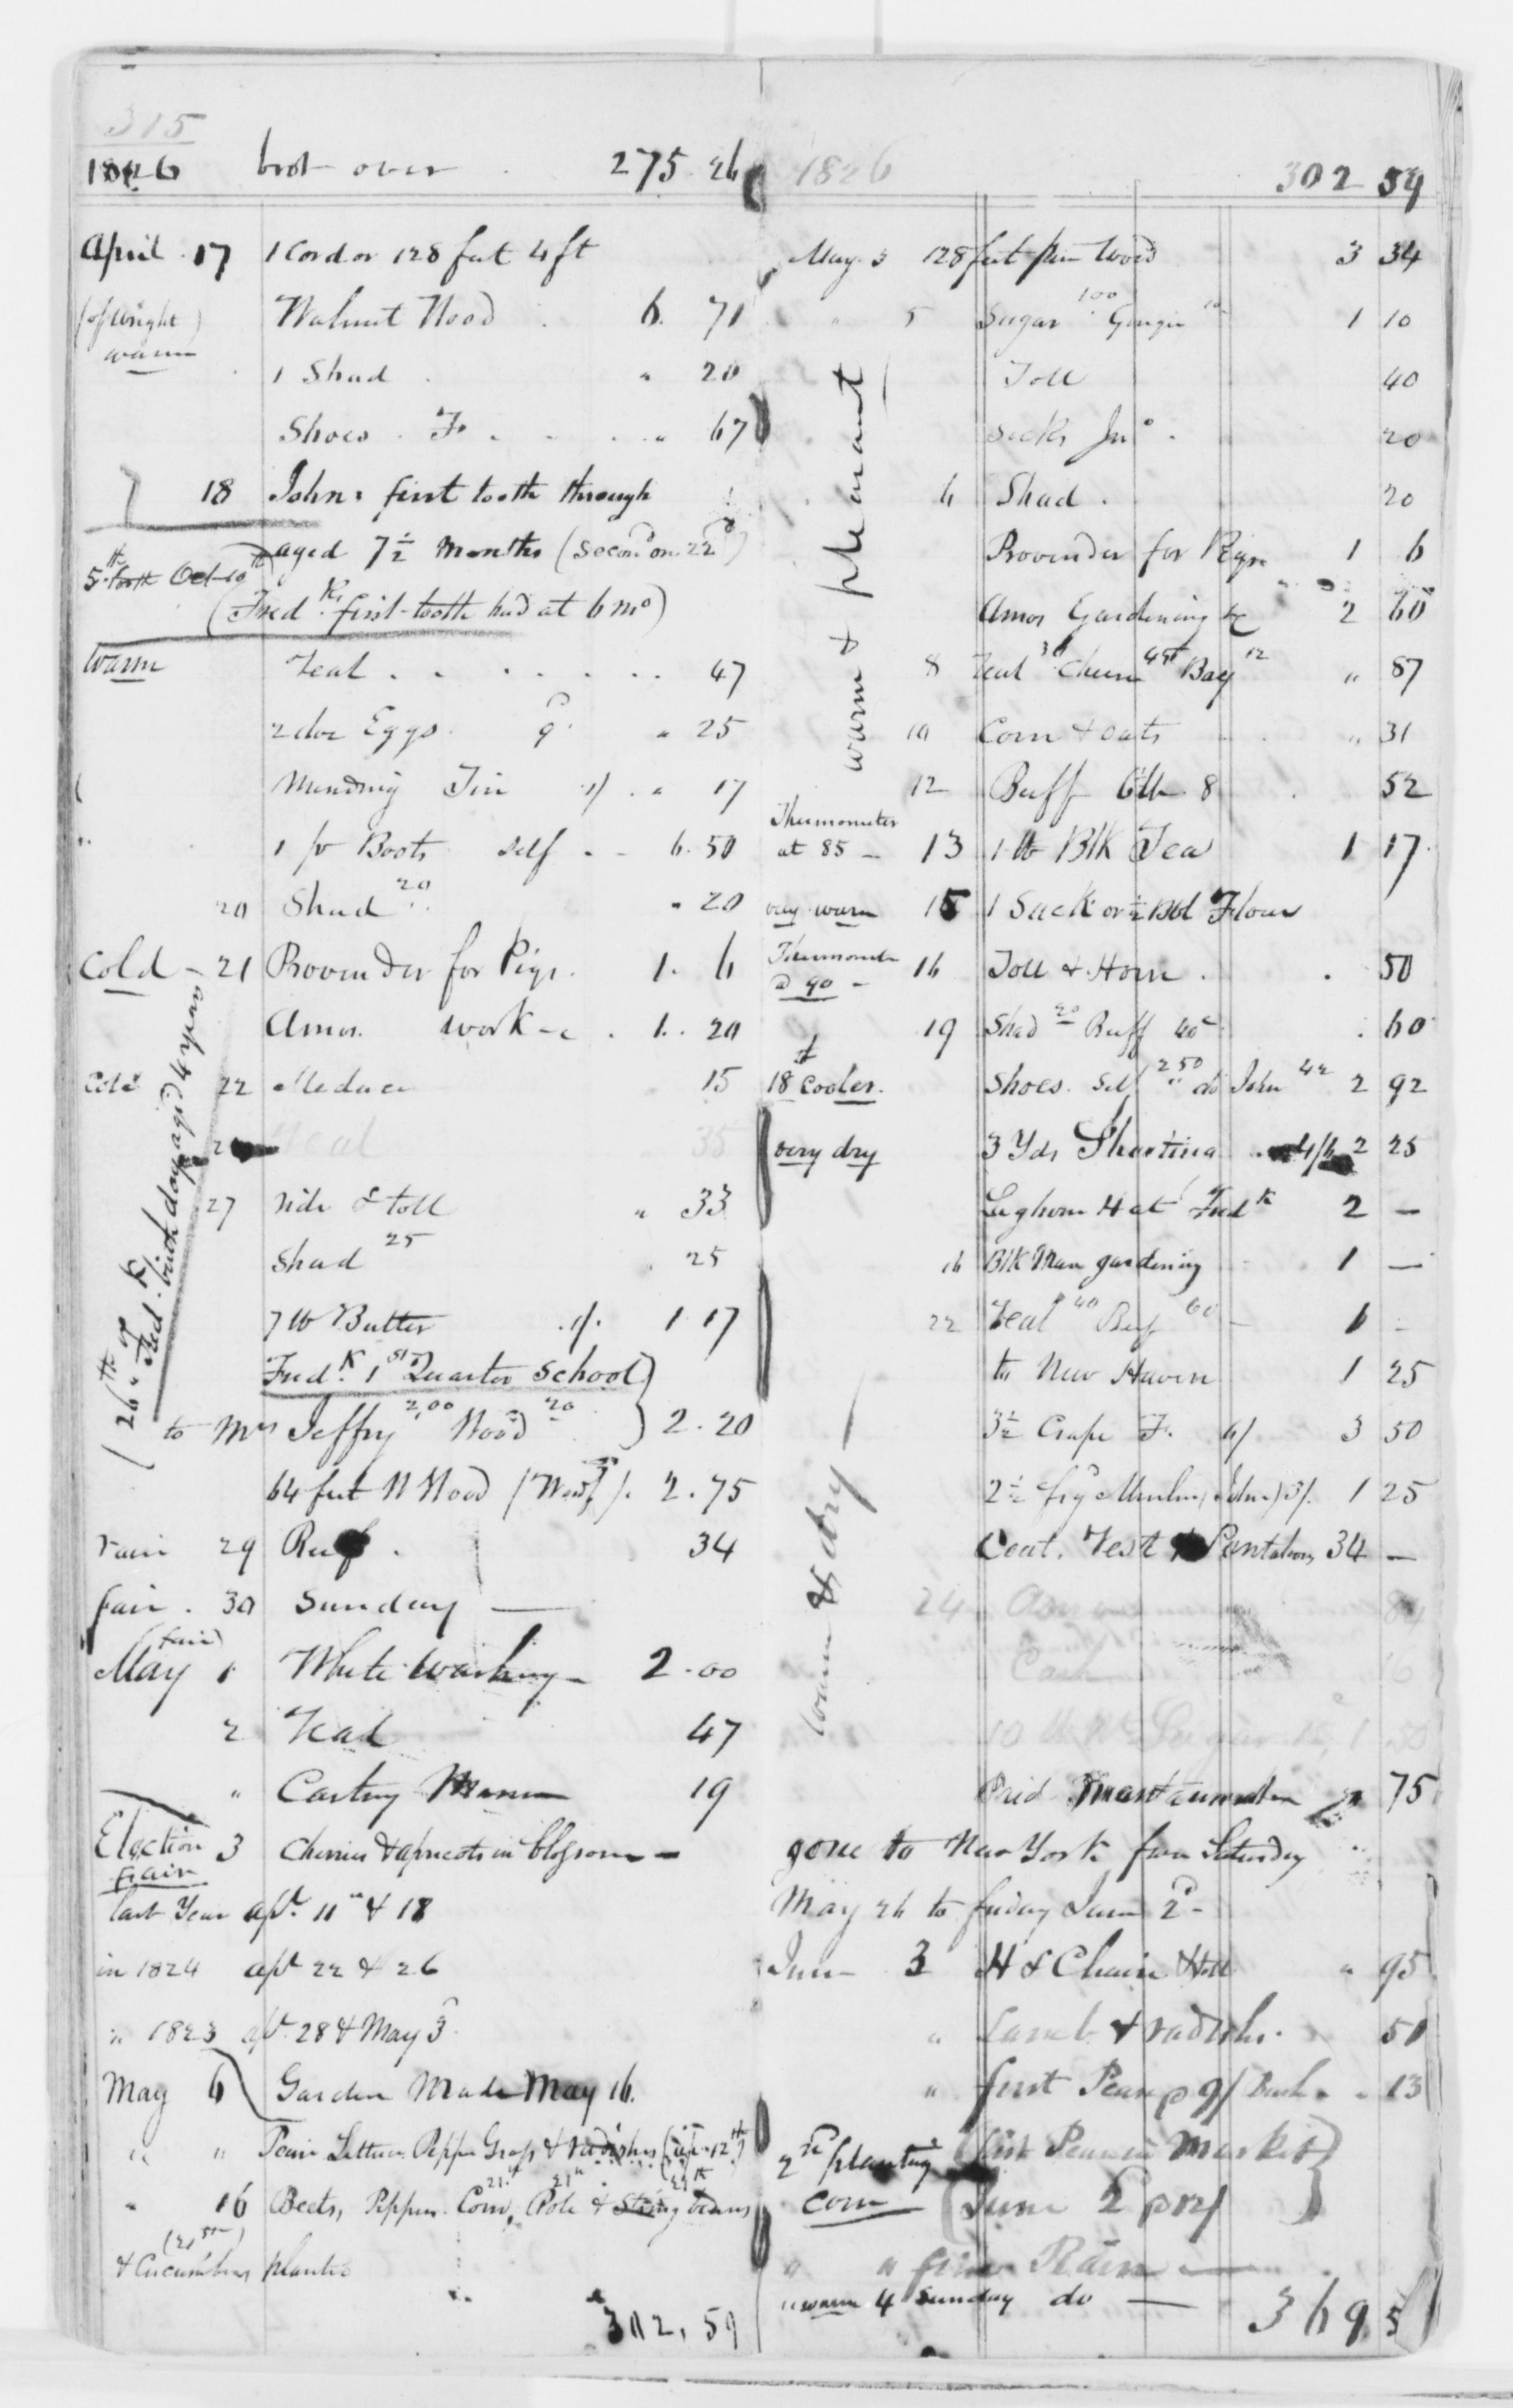 315
1826 brot over 275.26
April 17 1 Cord or 128 feet 4 ft
(of Wright) Walnut Wood 6. 71
warm
1 Shad " 20
Shoes F. " 67
18 Johns first tooth through
aged 7½ months (second on 22d)
5th tooth Oct 10th
(Fredk. first tooth had at 6 mo)
warm Veal 47
2 doz Eggs 9d " 25
Mending Tin 1/ " 17
1 pr Boots self 6.50
20 Shad 20 " 20
Cold - 21 Provender for Pigs 1. 6
Amos work 1. 20
Cold 22 15
Veal 35
27 ride & toll " 33
Shad 25 25
7 lb Butter 1/. 1 17
(26th of Fredk. birth day aged 4 years
Fredk. 1st Quarter School
to Mrs Jeffry 2,00 Wood 20 } 2.20
64 feet W Wood 2.75
rain 29 34
fair. 30 Sunday —
(fair)
May 1 White Washing 2.00
2 Veal 47
" Carting Manure 19
Election 3 Cherries & apricots in blossom —
rain
last Year apl. 11 & 18
in 1824 apl 22 & 26
" 1823 apl. 28 & May 3d
May 6 Garden Made May 16.
" " Peas Lettuce Pepper Grass & radishes (up 12th)
" 16 Beets, Peppers Corn, Pole & String beans
(21st)
& Cucumbers planted
302,59
1826 302 59
May 3 128 feet Pine Wood 3 34
5 Sugar 100 Ginger 10 1 10
warm & pleasant
Toll 40
Socks Jno. 20
6 Shad 20
Provender for Pigs 1 6
Amos Gardening &c 2 60
8 Veal 30 Cheese 45 Bag 12 " 87
10 Corn & oats " 31
12 Beef 6 lb 8 52
Thermometer
at 85 — 13 1 lb Blk Tea 1 17
very warm 15 1 Sack or ½ Bbl Flour
Thermometer
@ 90 — 16 Toll & Horn 50
19 Shad 20 Beef 40c 60
18 cooler. Shoes Self 2 50 " do John 42 2 92
very dry 3 Yds 4/6 2 25
Leghorn Hat Fredk 2 —
16 Blk Man gardening 1 —
22 Veal 40 Beef 60 1 -
to New Haven 1 25
3½ Crape F. 6/ 3 50
2½ fig'd Muslin (John) 3/. 1 25
warm & dry
Coat, Vest & Pantaloons 34 —
24 84
Cash 16
10 lb Sugar 1 50
Paid 75
gone to New York from Saturday
May 26 to friday June 2d —
June 3 H & Chaise & toll " 95
" Lamb & radishes 50
" first Peas @ 9/ Bush 13
2nd planting (first Peas in Market)
corn (June 2 @ 12/)
" " fine Rain —
" warm 4 Sunday do —
369 5